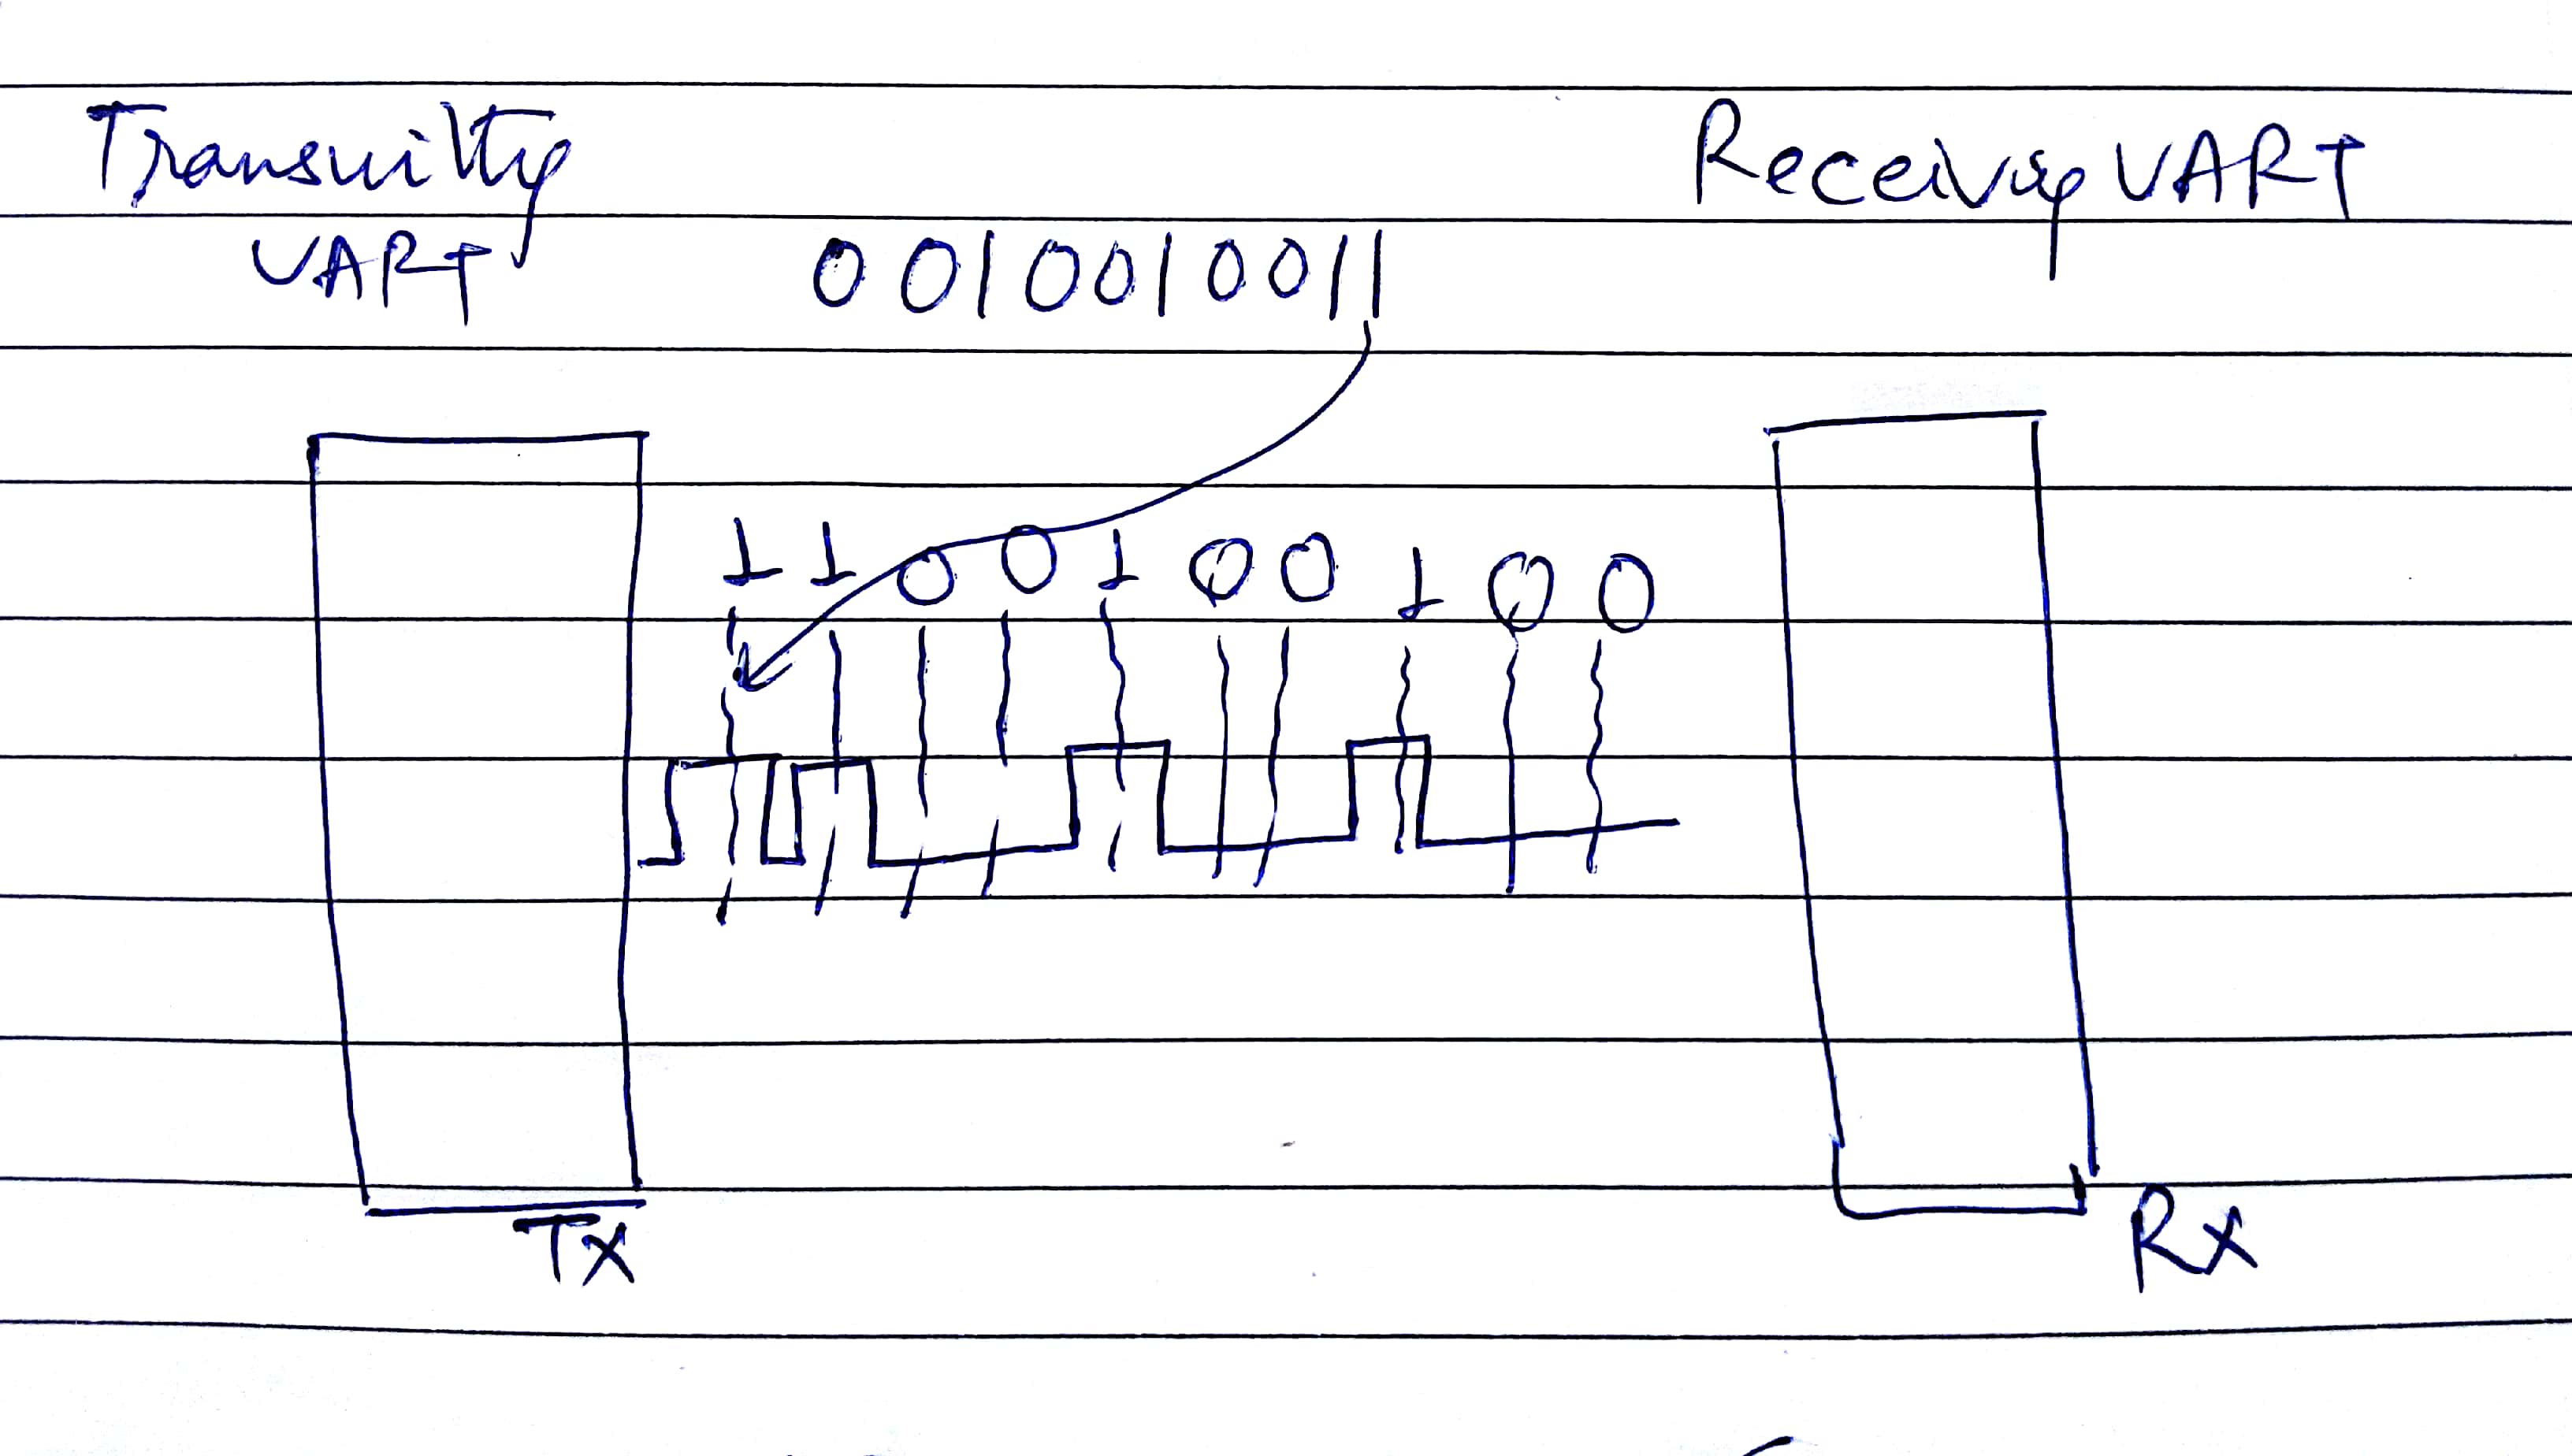 Transmitting Receiving UART
UART 0010010011
1 1 0 0 1 0 0 1 0 0
Tx Rx